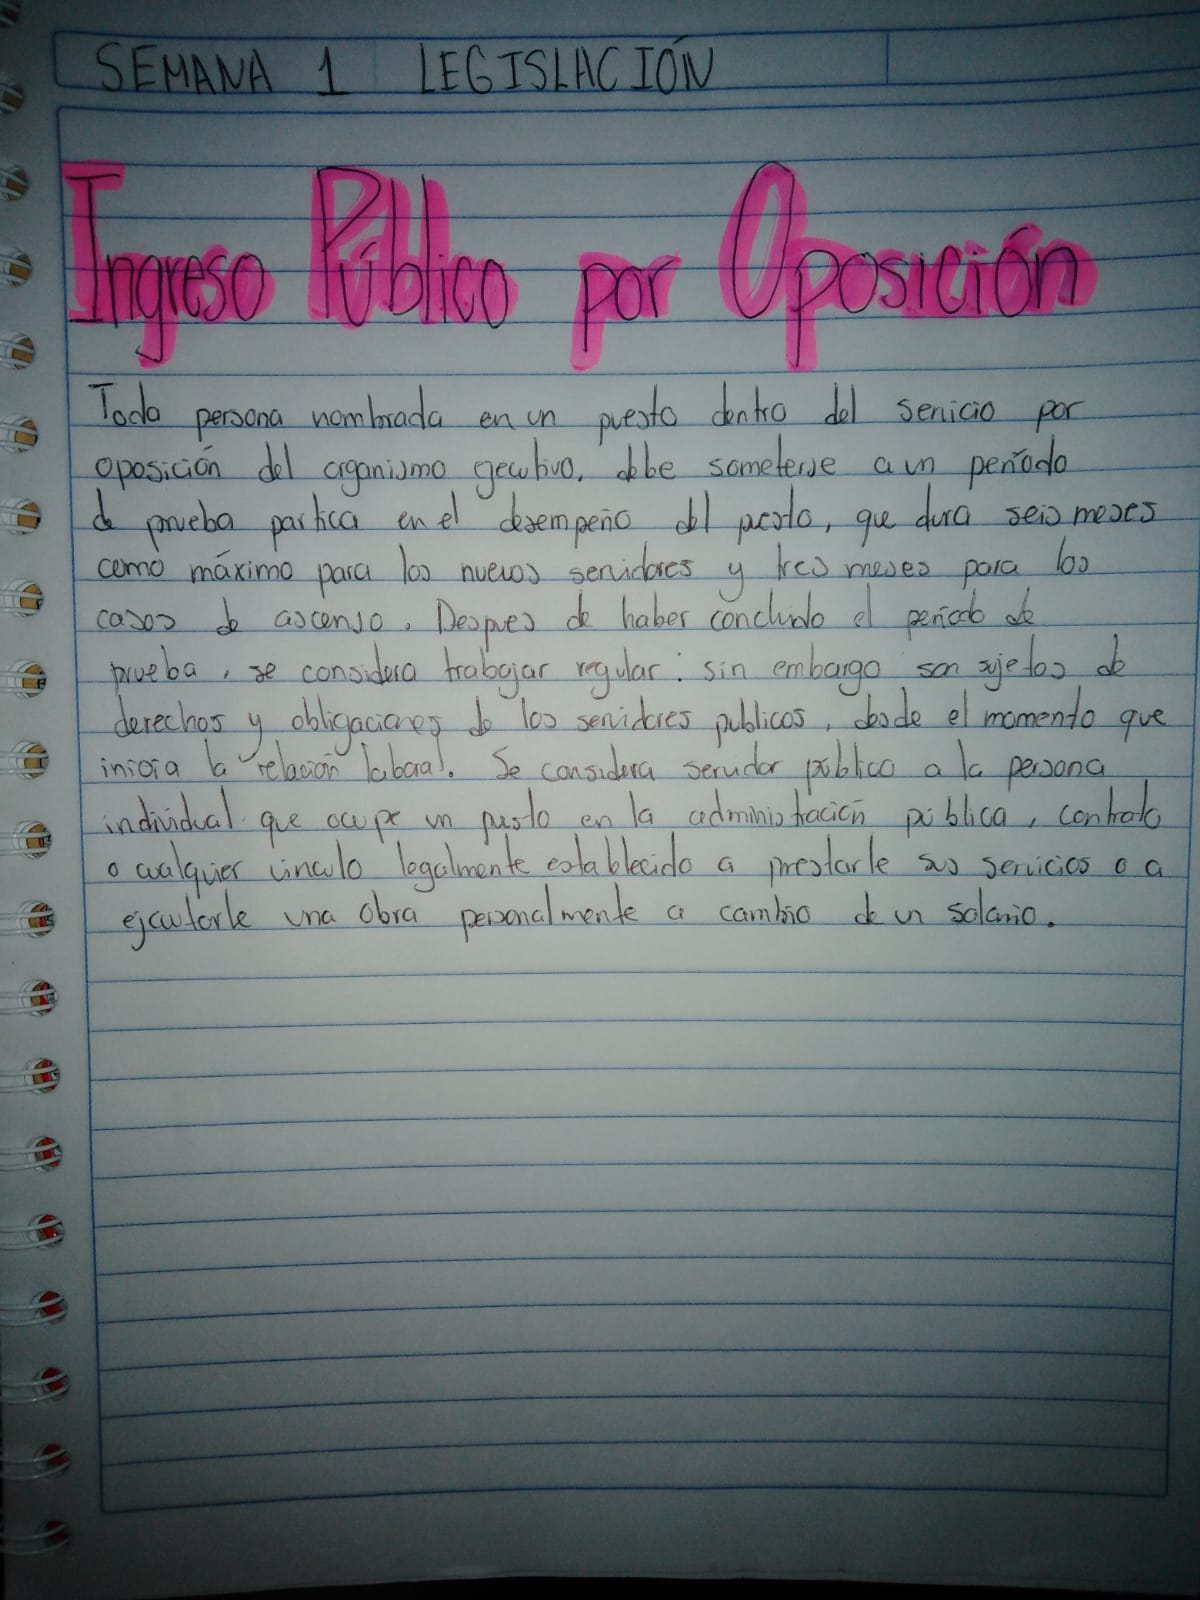 SEMANA 1 LEGISLACIÓN
Ingreso Público por Oposición
Toda persona nombrada en un puesto dentro del servicio por
oposición del organismo ejecutivo, debe someterse a un período
de prueba partica en el desempeño del puesto, que dura seis meses
como máximo para los nuevos servidores y tres meses para los
casos de ascenso. Despues de haber concluido el período de
prueba, se considera trabajar regular: sin embargo son sujetos de
derechos y obligaciones de los servidores publicos, desde el momento que
inicia la relación laboral. Se considera servidor público a la persona
individual que ocupe un puesto en la administración pública, contrato
o cualquier vinculo legalmente establecido a prestarle sus servicios o a
ejecutarle una obra personalmente a cambio de un salario.